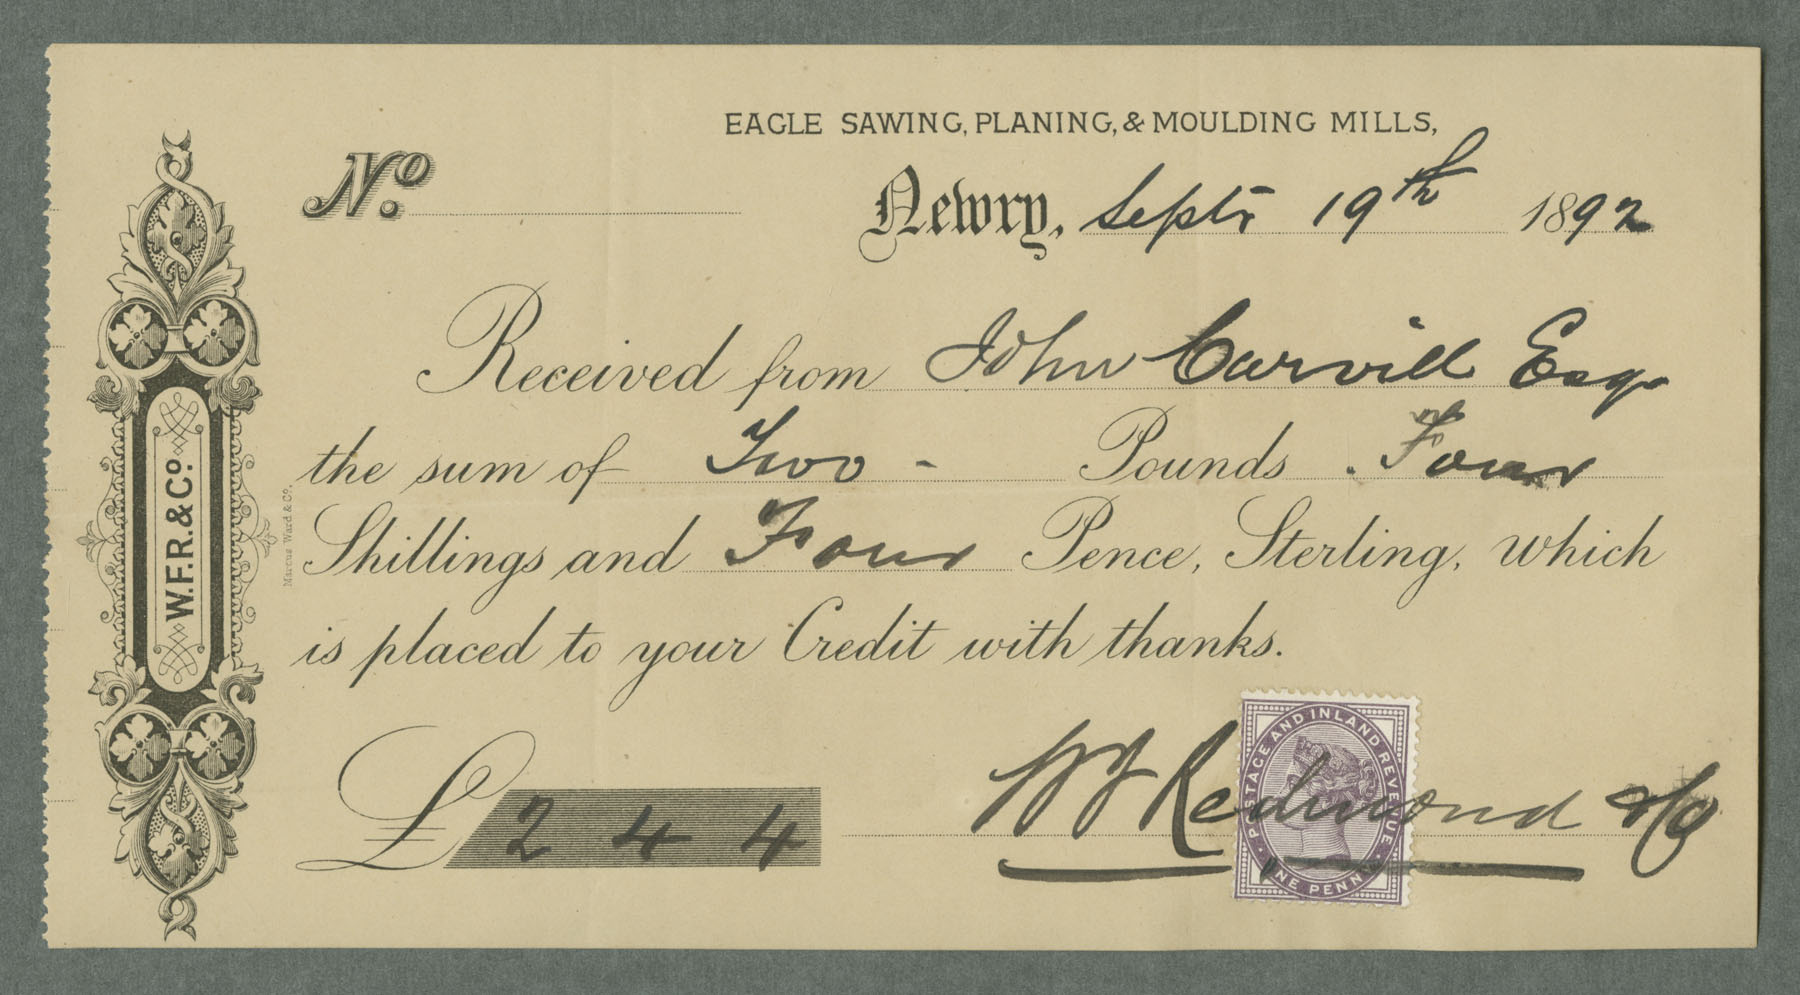 EAGLE SAWING, PLANING, & MOULDING MILLS,
No.
Newry, Septr 19th 1892
Received from John Carvill Esqr
the sum of Two - Pounds Four
Shillings and Four Pence, Sterling, which
is placed to your Credit with thanks.
£ 2 4 4
WF Redmond & Co
W.F.R. & Co.
Marcus Ward & Co.
POSTAGE AND INLAND REVENUE
ONE PENNY